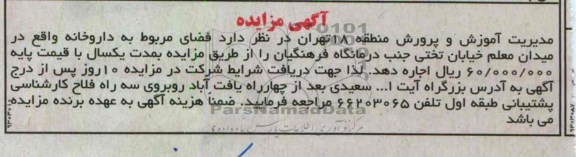 آگهی مزایده
مدیریت آموزش و پرورش منطقه ۱۸تهران در نظر دارد فضای مربوط به داروخانه واقع در
میدان معلم خیابان تختی جنب درمانگاه فرهنگیان را از طریق مزایده بمدت یکسال با قیمت پایه
۶۰/۰۰۰/۰۰۰ ریال اجاره دهد. لذا جهت دریافت شرایط شرکت در مزایده ۱۰روز پس از درج
آگهی به آدرس بزرگراه آیت ا... سعیدی بعد از چهارراه یافت آباد روبروی سه راه فلاح کارشناسی
پشتیبانی طبقه اول تلفن ۶۶۲۰۳۰۶۵ مراجعه فرمایید. ضمنا هزینه آگهی به عهده برنده مزایده
می باشد
ParsNamadData